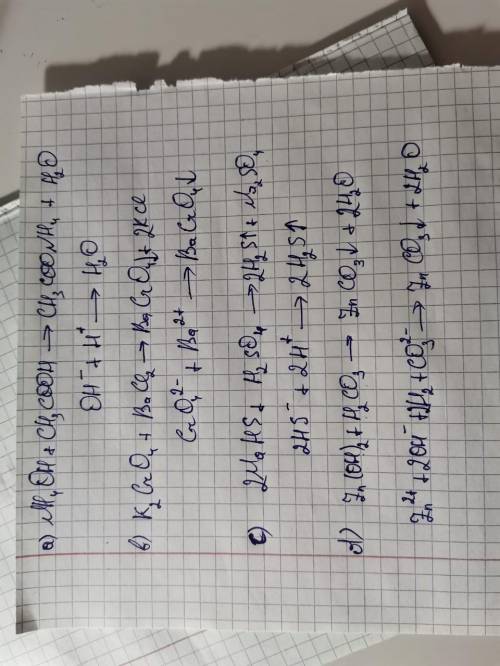 a) NH₄OH + CH₃COOH → CH₃COONH₄ + H₂O
OH⁻ + H⁺ → H₂O
b) K₂CrO₄ + BaCl₂ → BaCrO₄↓ + 2KCl
CrO₄²⁻ + Ba²⁺ → BaCrO₄↓
c) 2NaHS + H₂SO₄ → 2H₂S↑ + Na₂SO₄
2HS⁻ + 2H⁺ → 2H₂S↑
d) Zn(OH)₂ + H₂CO₃ → ZnCO₃↓ + 2H₂O
Zn²⁺ + 2OH⁻ + 2H₂ + CO₃²⁻ → ZnCO₃↓ + 2H₂O